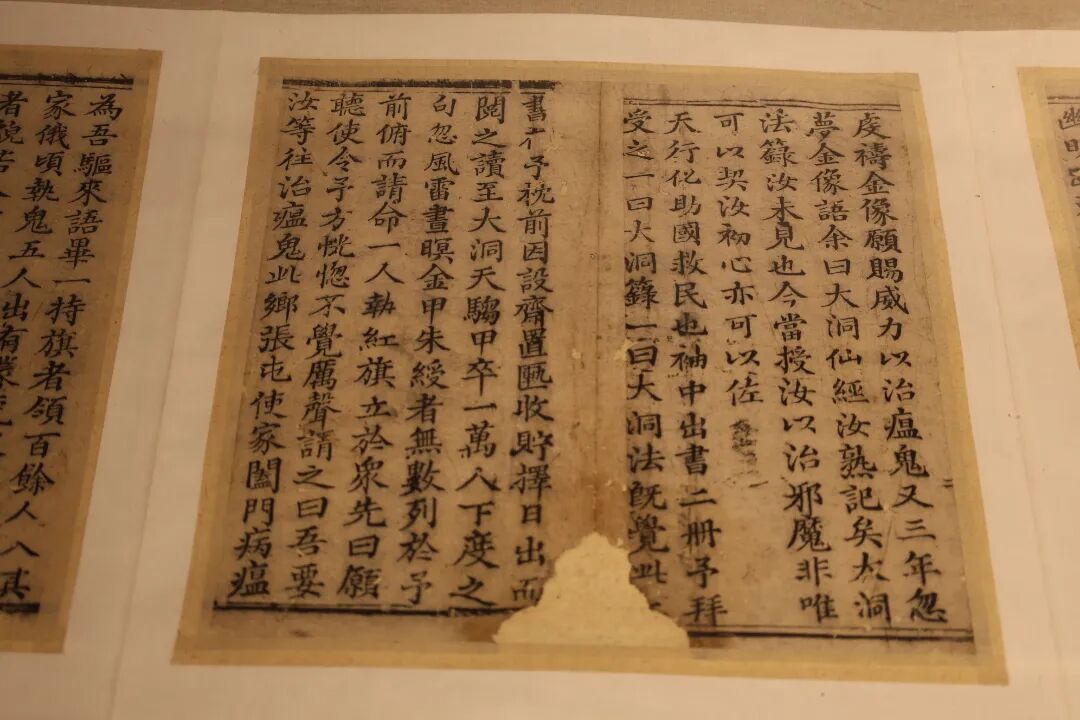 幽明
虔禱金像願賜威力以治瘟鬼又三年忽
夢金像語余曰大洞仙經汝熟記矣大洞
法籙汝未見也今當授汝以治邪魔非唯
可以契汝初心亦可以佐
天行化助國救民也袖中出書二冊予拜
受之一曰大洞籙一曰大洞法旣覺此
書在予枕前因設齋置匭收貯擇日出而
閱之讀至大洞天騶甲卒一萬人下度之
句忽風雷晝暝金甲朱綬者無數列於予
前俯而請命一人執紅旗立於眾先曰願
聽使令予方恍惚不覺厲聲請之曰吾要
汝等往治瘟鬼此鄉張屯使家闔門病瘟
為吾驅來語畢一持旗者領百餘人入其
家俄頃執鬼五人出有
者貌若